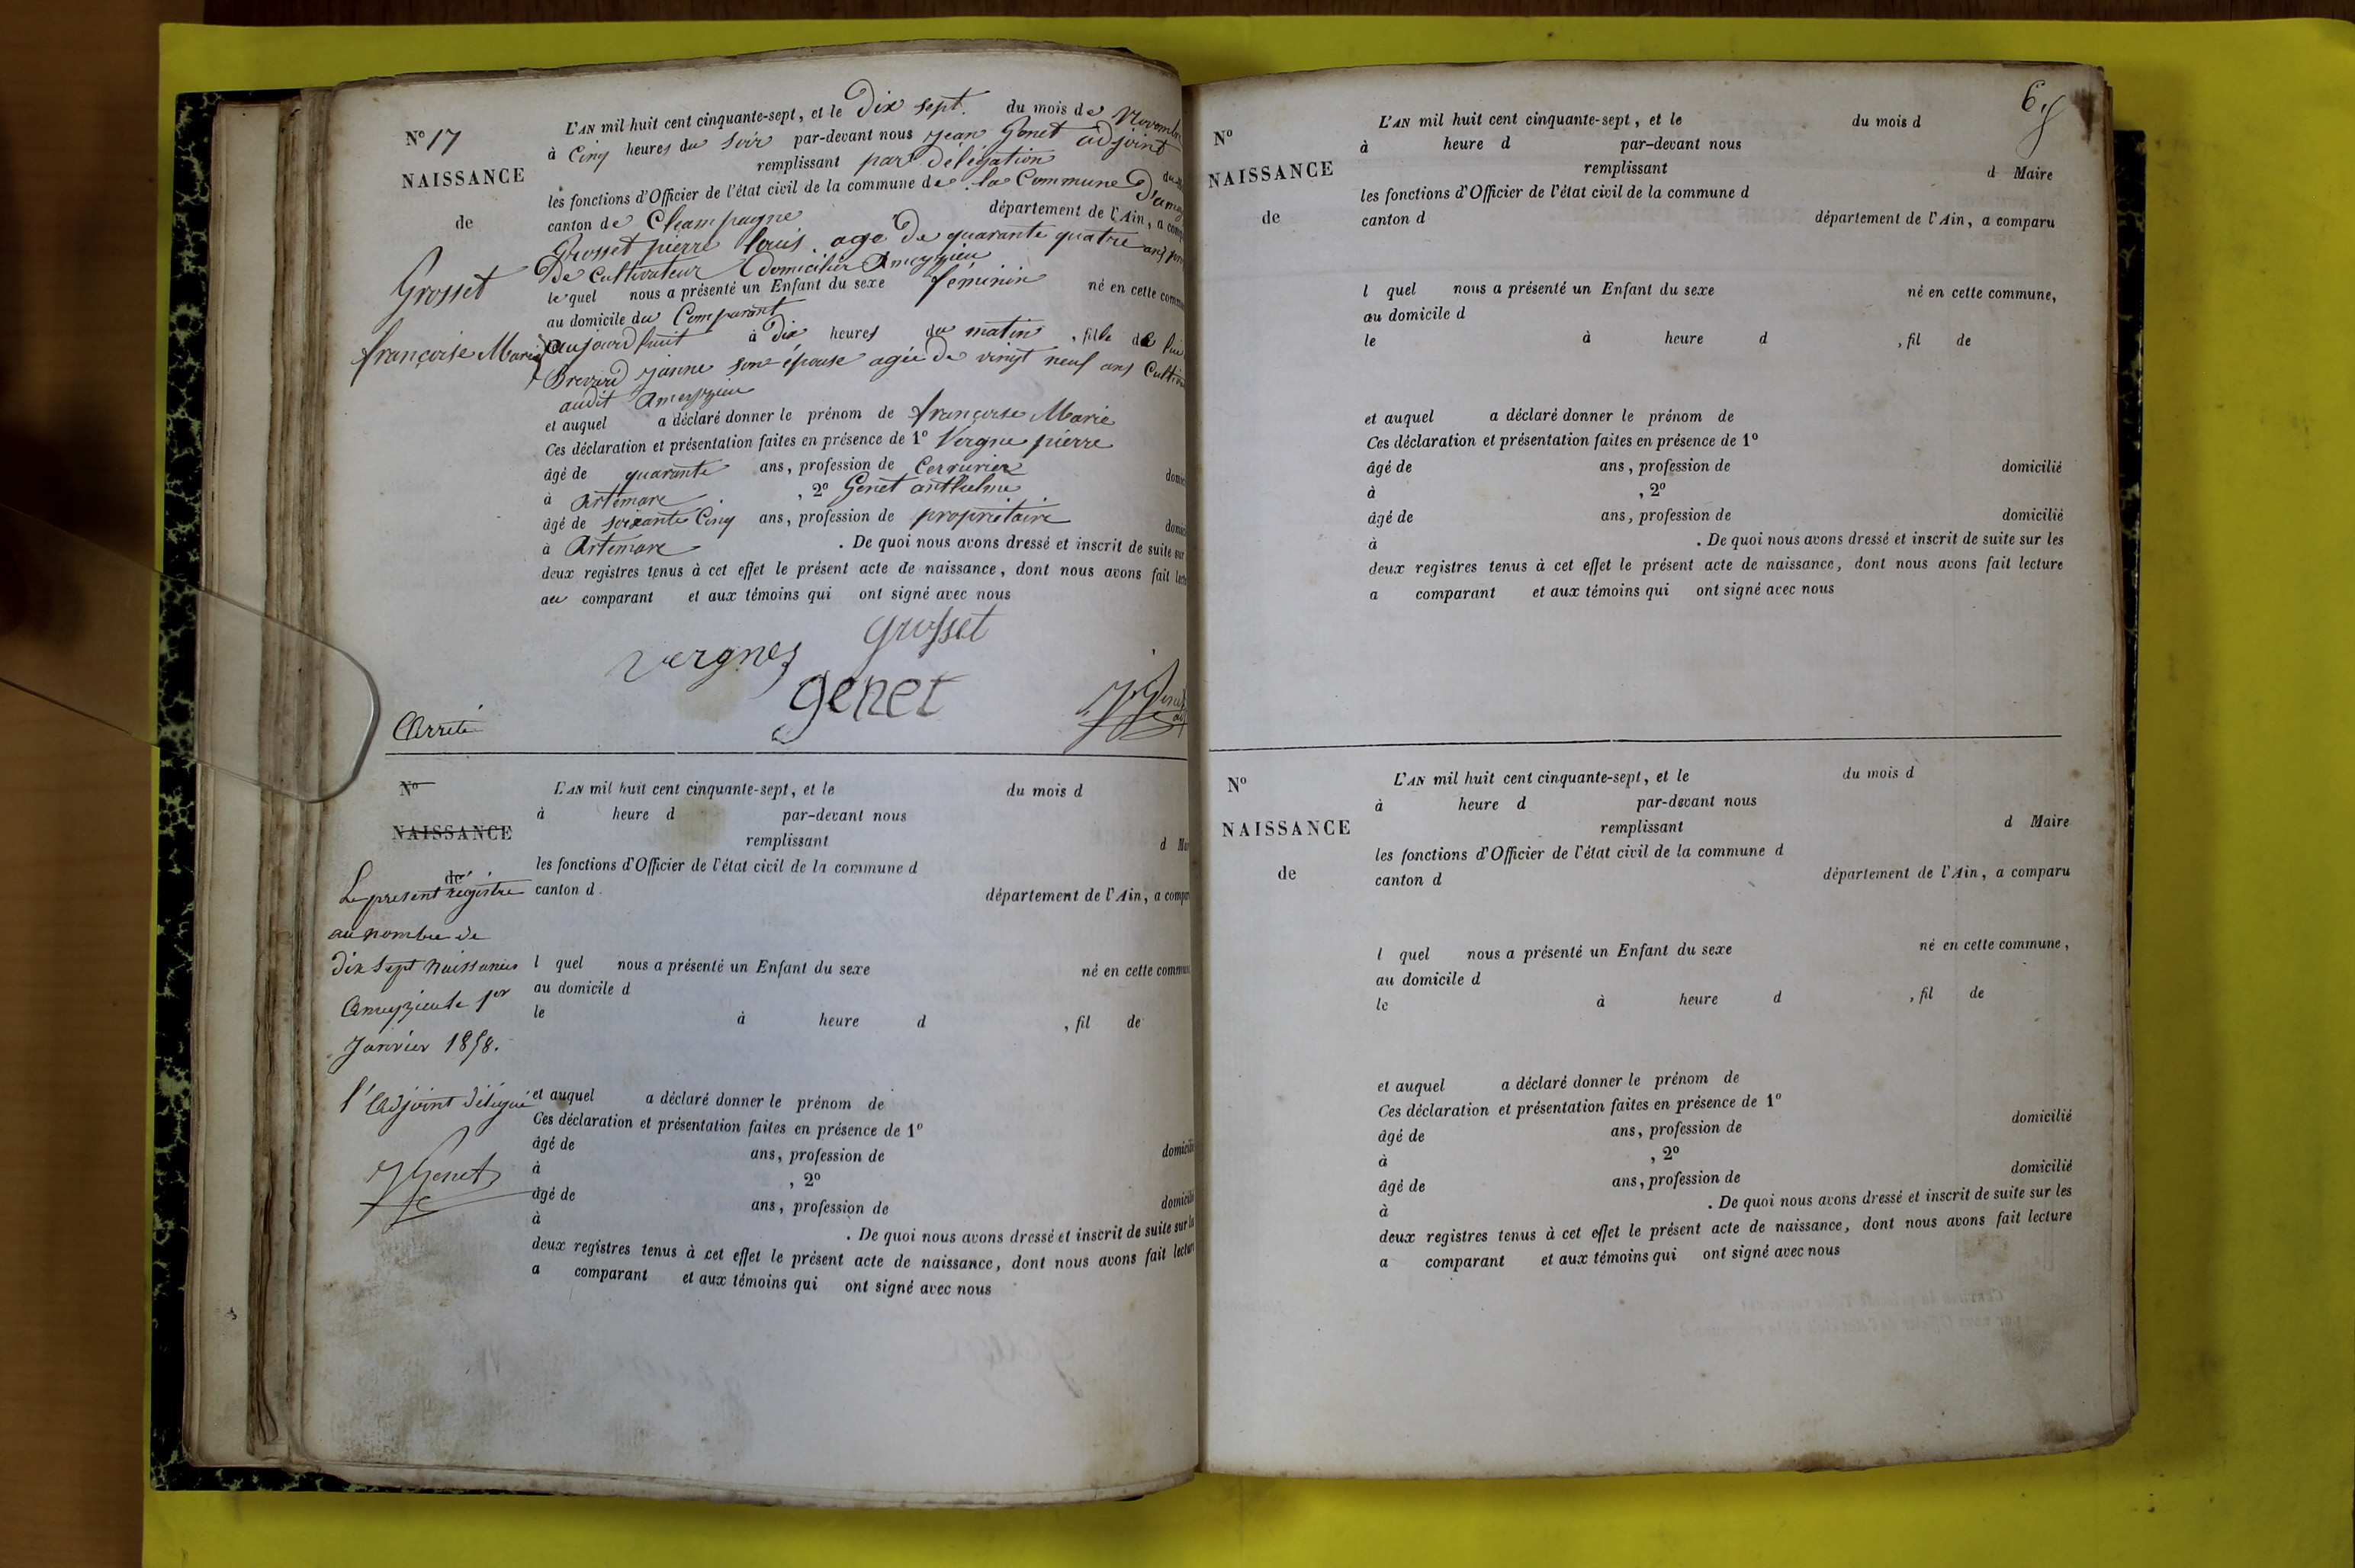 N° 17
NAISSANCE
de
Grosset
françoise Marie
L'AN mil huit cent cinquante-sept, et le Dix sept. du mois de Novembre
à Cinq heures du Soir par-devant nous Jean Genet adjoint
remplissant par délégation du
les fonctions d'Officier de l'état civil de la commune de la Commune D'amey
canton de Champagne département de l'Ain, a comp
Grosset pierre louis age De quarante quatre ans pro
De Cultivateur Domicilier Ameyzieu
lequel nous a présenté un Enfant du sexe féminin né en cette comm
au domicile du Comparant
aujourdhuit à Dix heures du matin, fille de lui
Brevard janne son épouse agée de vingt neuf ans Cultiv
audit Ameyzieu
et auquel a déclaré donner le prénom de françoise Marie
Ces déclaration et présentation faites en présence de 1° Vergne pierre
âgé de quarante ans, profession de Cerrurier domici
à Artemare , 2° Genet anthelme
âgé de soixante Cinq ans, profession de propriétaire domici
à Artemare . De quoi nous avons dressé et inscrit de suite sur
deux registres tenus à cet effet le présent acte de naissance, dont nous avons fait lectu
au comparant et aux témoins qui ont signé avec nous
Grosset
Vergnes
genet
J Genet
adj
Arrêté
N°
NAISSANCE
de
Le présent régistre
au nombre de
dix sept naissances
Ameyzieu le 1er
Janvier 1858.
l'Adjoint délégué
J Genet
L'AN mil huit cent cinquante-sept, et le du mois d
à heure d par-devant nous
remplissant d Mai
les fonctions d'Officier de l'état civil de la commune d
canton d département de l'Ain, a compar
l quel nous a présenté un Enfant du sexe né en cette commun
au domicile d
le à heure d , fil de
et auquel a déclaré donner le prénom de
Ces déclaration et présentation faites en présence de 1°
âgé de ans, profession de domicilié
à , 2°
âgé de ans, profession de domicilié
à . De quoi nous avons dressé et inscrit de suite sur le
deux registres tenus à cet effet le présent acte de naissance, dont nous avons fait lectur
a comparant et aux témoins qui ont signé avec nous
N°
NAISSANCE
de
L'AN mil huit cent cinquante-sept, et le du mois d
à heure d par-devant nous
remplissant d Maire
les fonctions d'Officier de l'état civil de la commune d
canton d département de l'Ain, a comparu
l quel nous a présenté un Enfant du sexe né en cette commune,
au domicile d
le à heure d , fil de
et auquel a déclaré donner le prénom de
Ces déclaration et présentation faites en présence de 1°
âgé de ans, profession de domicilié
à , 2°
âgé de ans, profession de domicilié
à . De quoi nous avons dressé et inscrit de suite sur les
deux registres tenus à cet effet le présent acte de naissance, dont nous avons fait lecture
a comparant et aux témoins qui ont signé avec nous
N°
NAISSANCE
de
L'AN mil huit cent cinquante-sept, et le du mois d
à heure d par-devant nous
remplissant d Maire
les fonctions d'Officier de l'état civil de la commune d
canton d département de l'Ain, a comparu
l quel nous a présenté un Enfant du sexe né en cette commune,
au domicile d
le à heure d , fil de
et auquel a déclaré donner le prénom de
Ces déclaration et présentation faites en présence de 1°
âgé de ans, profession de domicilié
à , 2°
âgé de ans, profession de domicilié
à . De quoi nous avons dressé et inscrit de suite sur les
deux registres tenus à cet effet le présent acte de naissance, dont nous avons fait lecture
a comparant et aux témoins qui ont signé avec nous